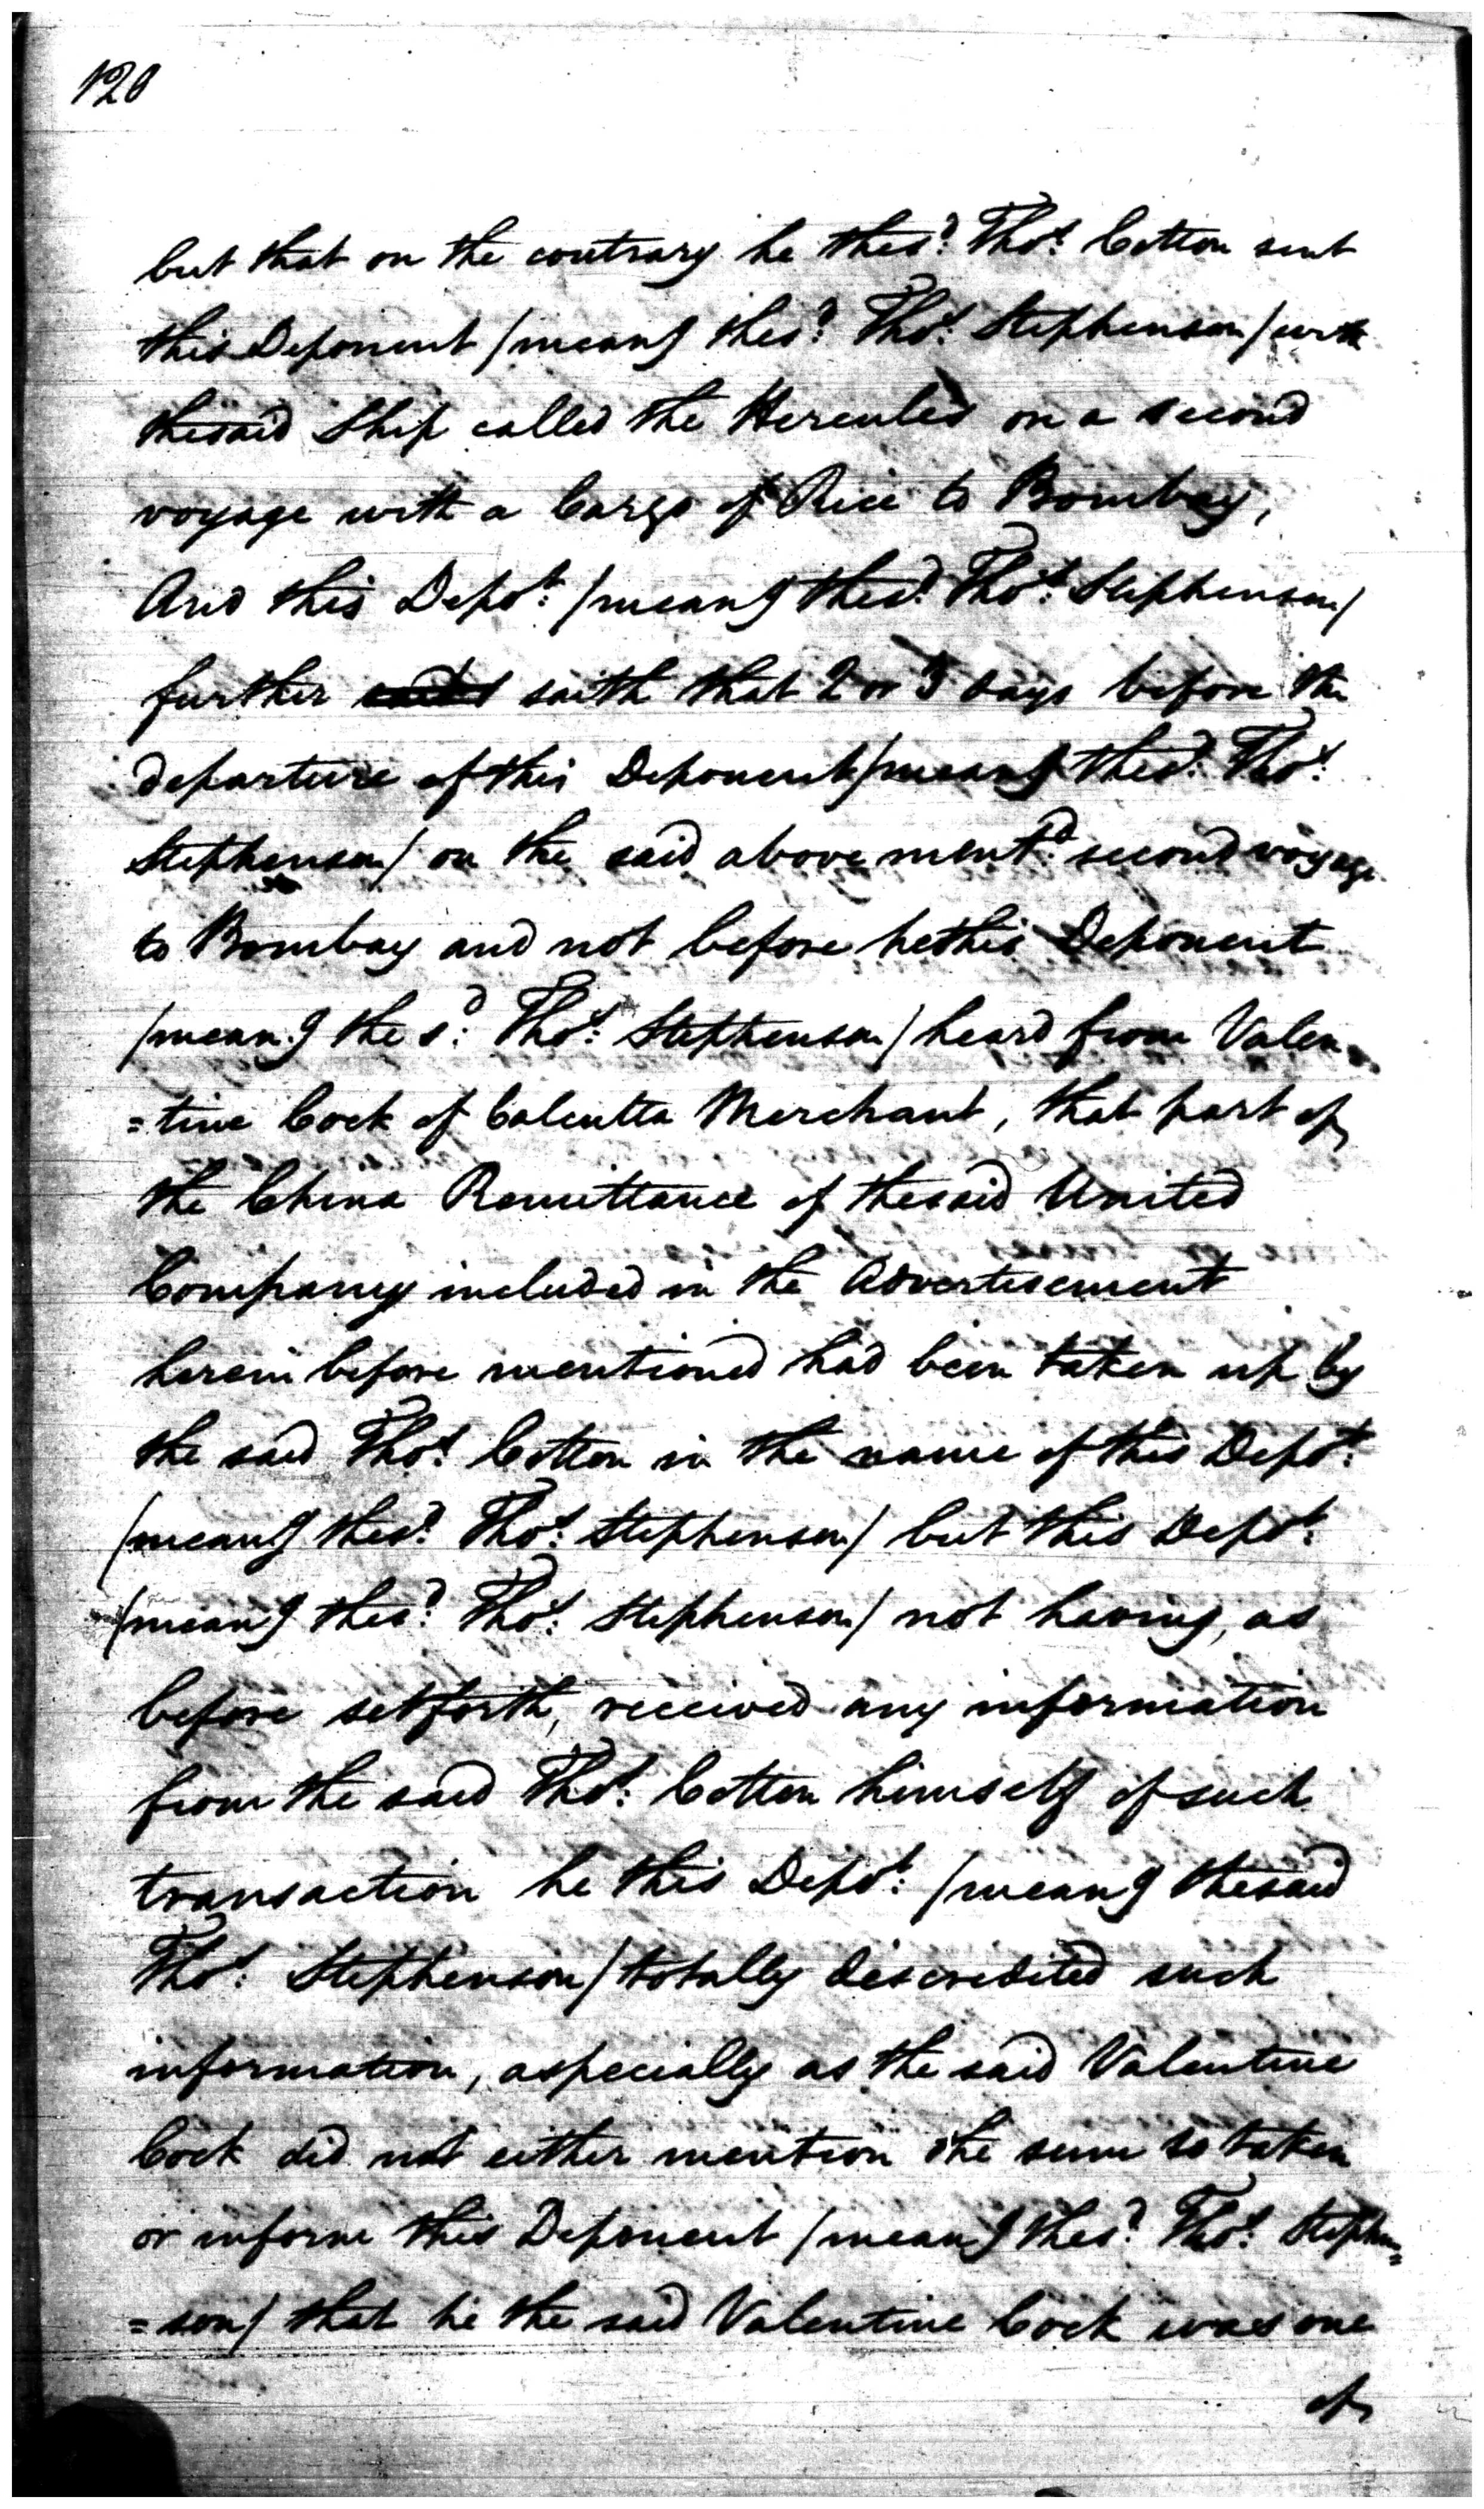 120
but that on the contrary he the s.d Tho.s Cotton sent
this Deponent /mean.g the s.d Tho.s Stephenson/ with
the said Ship called the Hercules on a second
voyage with a Cargo of Rice to Bombay,
And this Depo.t: /mean.g the s.d Tho.s Stephenson/
further saith that 2 or 3 days before the
departure of this Deponent /mean.g the s.d Tho.s
Stephenson/ on the said above ment.d second voyage
to Bombay and not before he this Deponent
/mean.g the s.d Tho.s Stephenson/ heard from Valen
=tine Cock of Calcutta Merchant, that part of
the China Remittance of the said United
Company included in the Advertisement
herein before mentioned had been taken up by
the said Tho.s Cotton in the name of this Depo.t:
/mean.g the s.d Tho.s Stephenson/ but this Depo.t:
/mean.g the s.d Tho.s Stephenson/ not having, as
before set forth, received any information
from the said Tho.s Cotton himself of such
transaction he this Depo.t: /mean.g the said
Tho.s Stephenson/ totally discredited such
information, aspecially as the said Valentine
Cock did not either mention the sum so taken
or inform this Deponent /mean.g the s.d Tho.s Stephen=
=son/ that he the said Valentine Cock was one
of